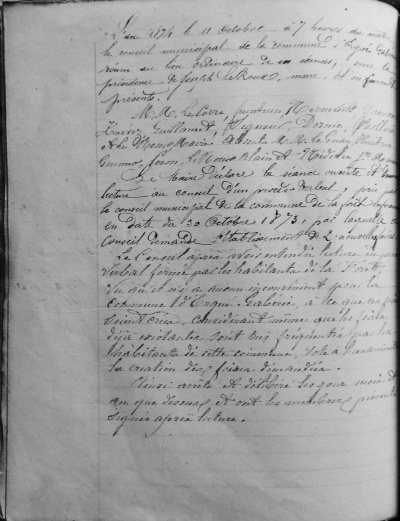 L'an 1874 le 11 Octobre à 7 heures du matin
le conseil municipal de la commune d'Ergué Gabéric
réuni au lieu ordinaire de ses séances, sous la
présidence de Joseph Le Roux, maire. Etaient
présents.
M.M. Le Corre,
Guillamet, Riguout,
et Le Meur Absents M.M. Le Guay
Le Maire déclare la séance ouverte et donne
lecture au conseil d'un procès-verbal, pris
le conseil municipal de la commune de la forêt
en date du 30 Octobre 1873, par laquelle ce
Conseil demande l'établissement de 2 nouvelles foires
Le Conseil après avoir entendu lecture du procès
verbal formé par les habitants de la Forêt
Vu qu'il n'y a aucun inconvénient pour la
commune d'Ergué-Gabéric, à ce que ces foires
soient créées, considérant même que les foires
déjà existantes sont très fréquentées par les
habitants de cette commune, vote à l'unanimité
la création des foires demandées.
Ainsi arrêté et délibéré les jour mois et
an que dessus, et ont les membres présents
signés après lecture.